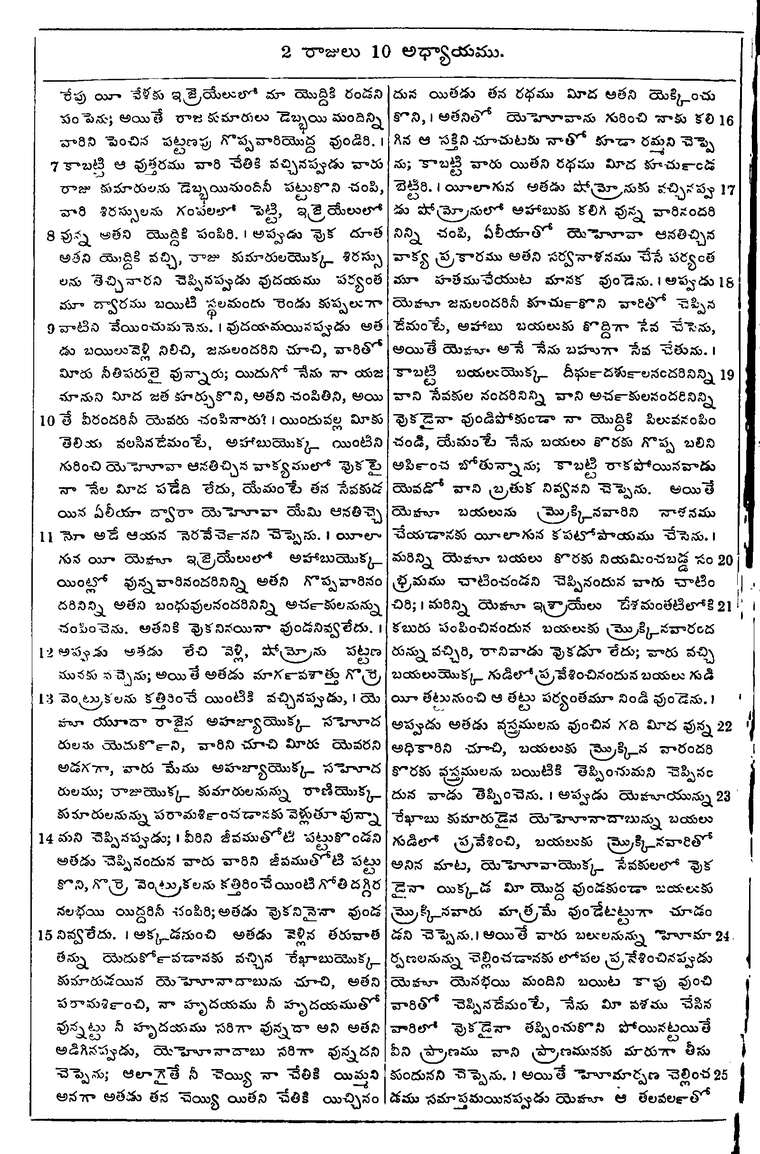 2 రాజులు 10 అధ్యాయము.
రేపు యీ వేళకు ఇజ్రెయేలులో మా యొద్దికి రండని
పంపెను; అయితే రాజ కుమారులు డెబ్భయి మందిన్ని
వారిని పెంచిన పట్టణపు గొప్పవారియొద్ద వుండిరి. ।
7 కాబట్టి ఆ వుత్తరము వారి చేతికి వచ్చినప్పుడు వారు
రాజు కుమారులను డెబ్భయిమందినీ పట్టుకొని చంపి,
వారి శిరస్సులను గంపలలో పెట్టి, ఇజ్రెయేలులో
8 వున్న అతని యొద్దికి పంపిరి. । అప్పుడు వొక దూత
అతని యొద్దికి వచ్చి, రాజు కుమారులయొక్క శిరస్సు
లను తెచ్చినారని చెప్పినప్పుడు వుదయము పర్యంత
మూ ద్వారము బయిటి స్థలమందు రెండు కుప్పలుగా
9 వాటిని వేయించుమనెను. । వుదయమయినప్పుడు అత
డు బయిలువెళ్లి నిలిచి, జనులందరిని చూచి, వారితో
మీరు నీతిపరులై వున్నారు; యిదుగో నేను నా యజ
మానుని మీద జత కూర్చుకొని, అతని చంపితిని, అయి
10 తే వీరందరినీ యెవరు చంపినారు? । యిందువల్ల మీకు
తెలియ వలసినదేమంటే, అహాబుయొక్క యింటిని
గురించి యెహోవా ఆనతిచ్చిన వాక్యములో వొకటై
నా నేల మీద పడేది లేదు, యేమంటే తన సేవకుడ
యిన ఏలీయా ద్వారా యెహోవా యేమి ఆనతిచ్చె
11 నో అదే ఆయన నెరవేర్చెనని చెప్పెను. । యీలా
గున యీ యెహూ ఇజ్రెయేలులో అహాబుయొక్క
యింట్లో వున్నవారినందరినిన్ని అతని గొప్పవారినం
దరినిన్ని అతని బంధువులనందరినిన్ని అర్చకులనున్ను
చంపించెను. అతనికి వొకనినయినా వుండనివ్వలేదు. ।
12 అప్పుడు అతడు లేచి వెళ్లి, షోమ్రోను పట్టణ
మునకు వచ్చెను; అయితే అతడు మార్గవశాత్తు గొర్రె
13 వెంట్రుకలను కత్తిరించే యింటికి వచ్చినప్పుడు, । యె
హూ యూదా రాజైన అహజ్యాయొక్క సహోద
రులను యెదుర్కొని, వారిని చూచి మీరు యెవరని
అడగగా, వారు మేము అహజ్యాయొక్క సహోద
రులము; రాజుయొక్క కుమారులనున్ను రాణియొక్క
కుమారులనున్ను పరామర్శించడానకు వెళ్లుతూ వున్నా
14 మని చెప్పినప్పుడు; । వీరిని జీవముతోటి పట్టుకొండని
అతడు చెప్పినందున వారు వారిని జీవముతోటి పట్టు
కొని, గొర్రె వెంట్రుకలను కత్తిరించేయింటి గోతి దగ్గిర
నలభయి యిద్దరినీ చంపిరి; అతడు వొకనినైనా వుండ
15 నివ్వలేదు. । అక్కడనుంచి అతడు వెళ్లిన తరువాత
తన్ను యెదుర్కోవడానకు వచ్చిన రేఖాబుయొక్క
కుమారుడయిన యెహోనాదాబును చూచి, అతని
పరామర్శించి, నా హృదయము నీ హృదయముతో
వున్నట్టు నీ హృదయము సరిగా వున్నదా అని అతని
అడిగినప్పుడు, యెహోనాదాబు సరిగా వున్నదని
చెప్పెను; ఆలాగైతే నీ చెయ్యి నా చేతికి యిమ్మని
అనగా అతడు తన చెయ్యి యితని చేతికి యిచ్చినం
దున యితడు తన రథము మీద అతని యెక్కించు
కొని, । అతనితో యెహోవాను గురించి నాకు కలి 16
గిన ఆ సక్తిని చూచుటకు నాతో కూడా రమ్మని చెప్పె
ను; కాబట్టి వారు యితని రథము మీద కూర్చుండ
బెట్టిరి. । యీలాగున అతడు షోమ్రోనుకు వచ్చినప్పు 17
డు షోమ్రోనులో అహాబుకు కలిగి వున్న వారినందరి
నిన్ని చంపి, ఏలీయాతో యెహోవా ఆనతిచ్చిన
వాక్య ప్రకారము అతని సర్వనాశనము చేసే పర్యంత
మూ హతముచేయుట మానక వుండెను. । అప్పుడు 18
యెహూ జనులందరినీ కూర్చుకొని వారితో చెప్పిన
దేమంటే, అహాబు బయలుకు కొద్దిగా సేవ చేసెను,
అయితే యెహూ అనే నేను బహుగా సేవ చేతును. ।
కాబట్టి బయలుయొక్క దీర్ఘదర్శులనందరినిన్ని 19
వాని సేవకుల నందరినిన్ని వాని అర్చకులనందరినిన్ని
వొకడైనా వుండిపోకుండా నా యొద్దికి పిలువనంపిం
చండి, యేమంటే నేను బయలు కొరకు గొప్ప బలిని
అర్పించ బోతున్నాను; కాబట్టి రాకపోయినవాడు
యెవడో వాని బ్రతుక నివ్వనని చెప్పెను. అయితే
యెహూ బయలును మ్రొక్కినవారిని నాశనము
చేయడానకు యీలాగున కపటోపాయము చేసెను. ।
మరిన్ని యెహూ బయలు కొరకు నియమించబడ్డ సం 20
భ్రమము చాటించండని చెప్పినందున వారు చాటిం
చిరి; । మరిన్ని యెహూ ఇశ్రాయేలు దేశమంతటిలోకి 21
కబురు పంపించినందున బయలుకు మ్రొక్కినవారంద
రున్ను వచ్చిరి, రానివాడు వొకడూ లేదు; వారు వచ్చి
బయలుయొక్క గుడిలో ప్రవేశించినందున బయలు గుడి
యీ తట్టునుంచి ఆ తట్టు పర్యంతమూ నిండి వుండెను. ।
అప్పుడు అతడు వస్త్రములను వుంచిన గది మీద వున్న 22
అధికారిని చూచి, బయలుకు మ్రొక్కిన వారందరి
కొరకు వస్త్రములను బయిటికి తెప్పించుమని చెప్పినం
దున వాడు తెప్పించెను. । అప్పుడు యెహూయున్ను 23
రేఖాబు కుమారుడైన యెహోనాదాబున్ను బయలు
గుడిలో ప్రవేశించి, బయలుకు మ్రొక్కినవారితో
అనిన మాట, యెహోవాయొక్క సేవకులలో వొక
డైనా యిక్కడ మీ యొద్ద వుండకుండా బయలుకు
మ్రొక్కినవారు మాత్రమే వుండేటట్టుగా చూడం
డని చెప్పెను. । అయితే వారు బలులనున్ను హోమా 24
ర్పణలనున్ను చెల్లించడానకు లోపల ప్రవేశించినప్పుడు
యెహూ యెనభయి మందిని బయిట కాపు వుంచి
వారితో చెప్పినదేమంటే, నేను మీ వశము చేసిన
వారిలో వొకడైనా తప్పించుకొని పోయినట్టయితే
వీని ప్రాణము వాని ప్రాణమునకు మారుగా తీసు
కుందునని చెప్పెను. । అయితే హోమార్పణ చెల్లించ 25
డము సమాప్తమయినప్పుడు యెహూ ఆ తలవర్లతో